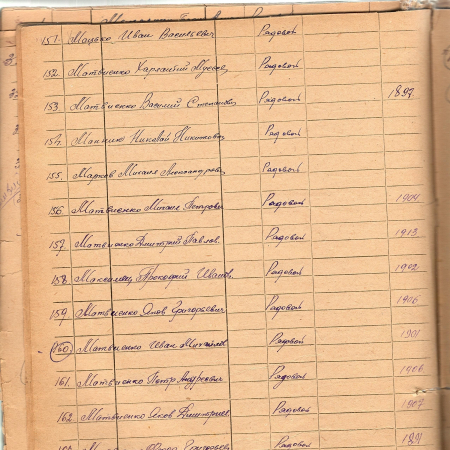 151. Мацько Иван Васильевич Рядовой
152. Матвиенко Харлантий Рядовой
153. Матвиенко Василий Степанович Рядовой 1897
154. Николай Никитович Рядовой
155. Марков Михаил Александрович Рядовой
156. Матвиенко Михаил Петрович Рядовой 1904
157. Матвиенко Дмитрий Павлов. Рядовой 1913
158. Прокофий Иванов. Рядовой 1902
159. Матвиенко Яков Григорьевич Рядовой 1906
160. Матвиенко Иван Михайлов Рядовой 1901
161. Матвиенко Петр Андреевич Рядовой 1906
162. Матвиенко Яков Дмитриев Рядовой 1907
Григорьевич Рядовой 1891